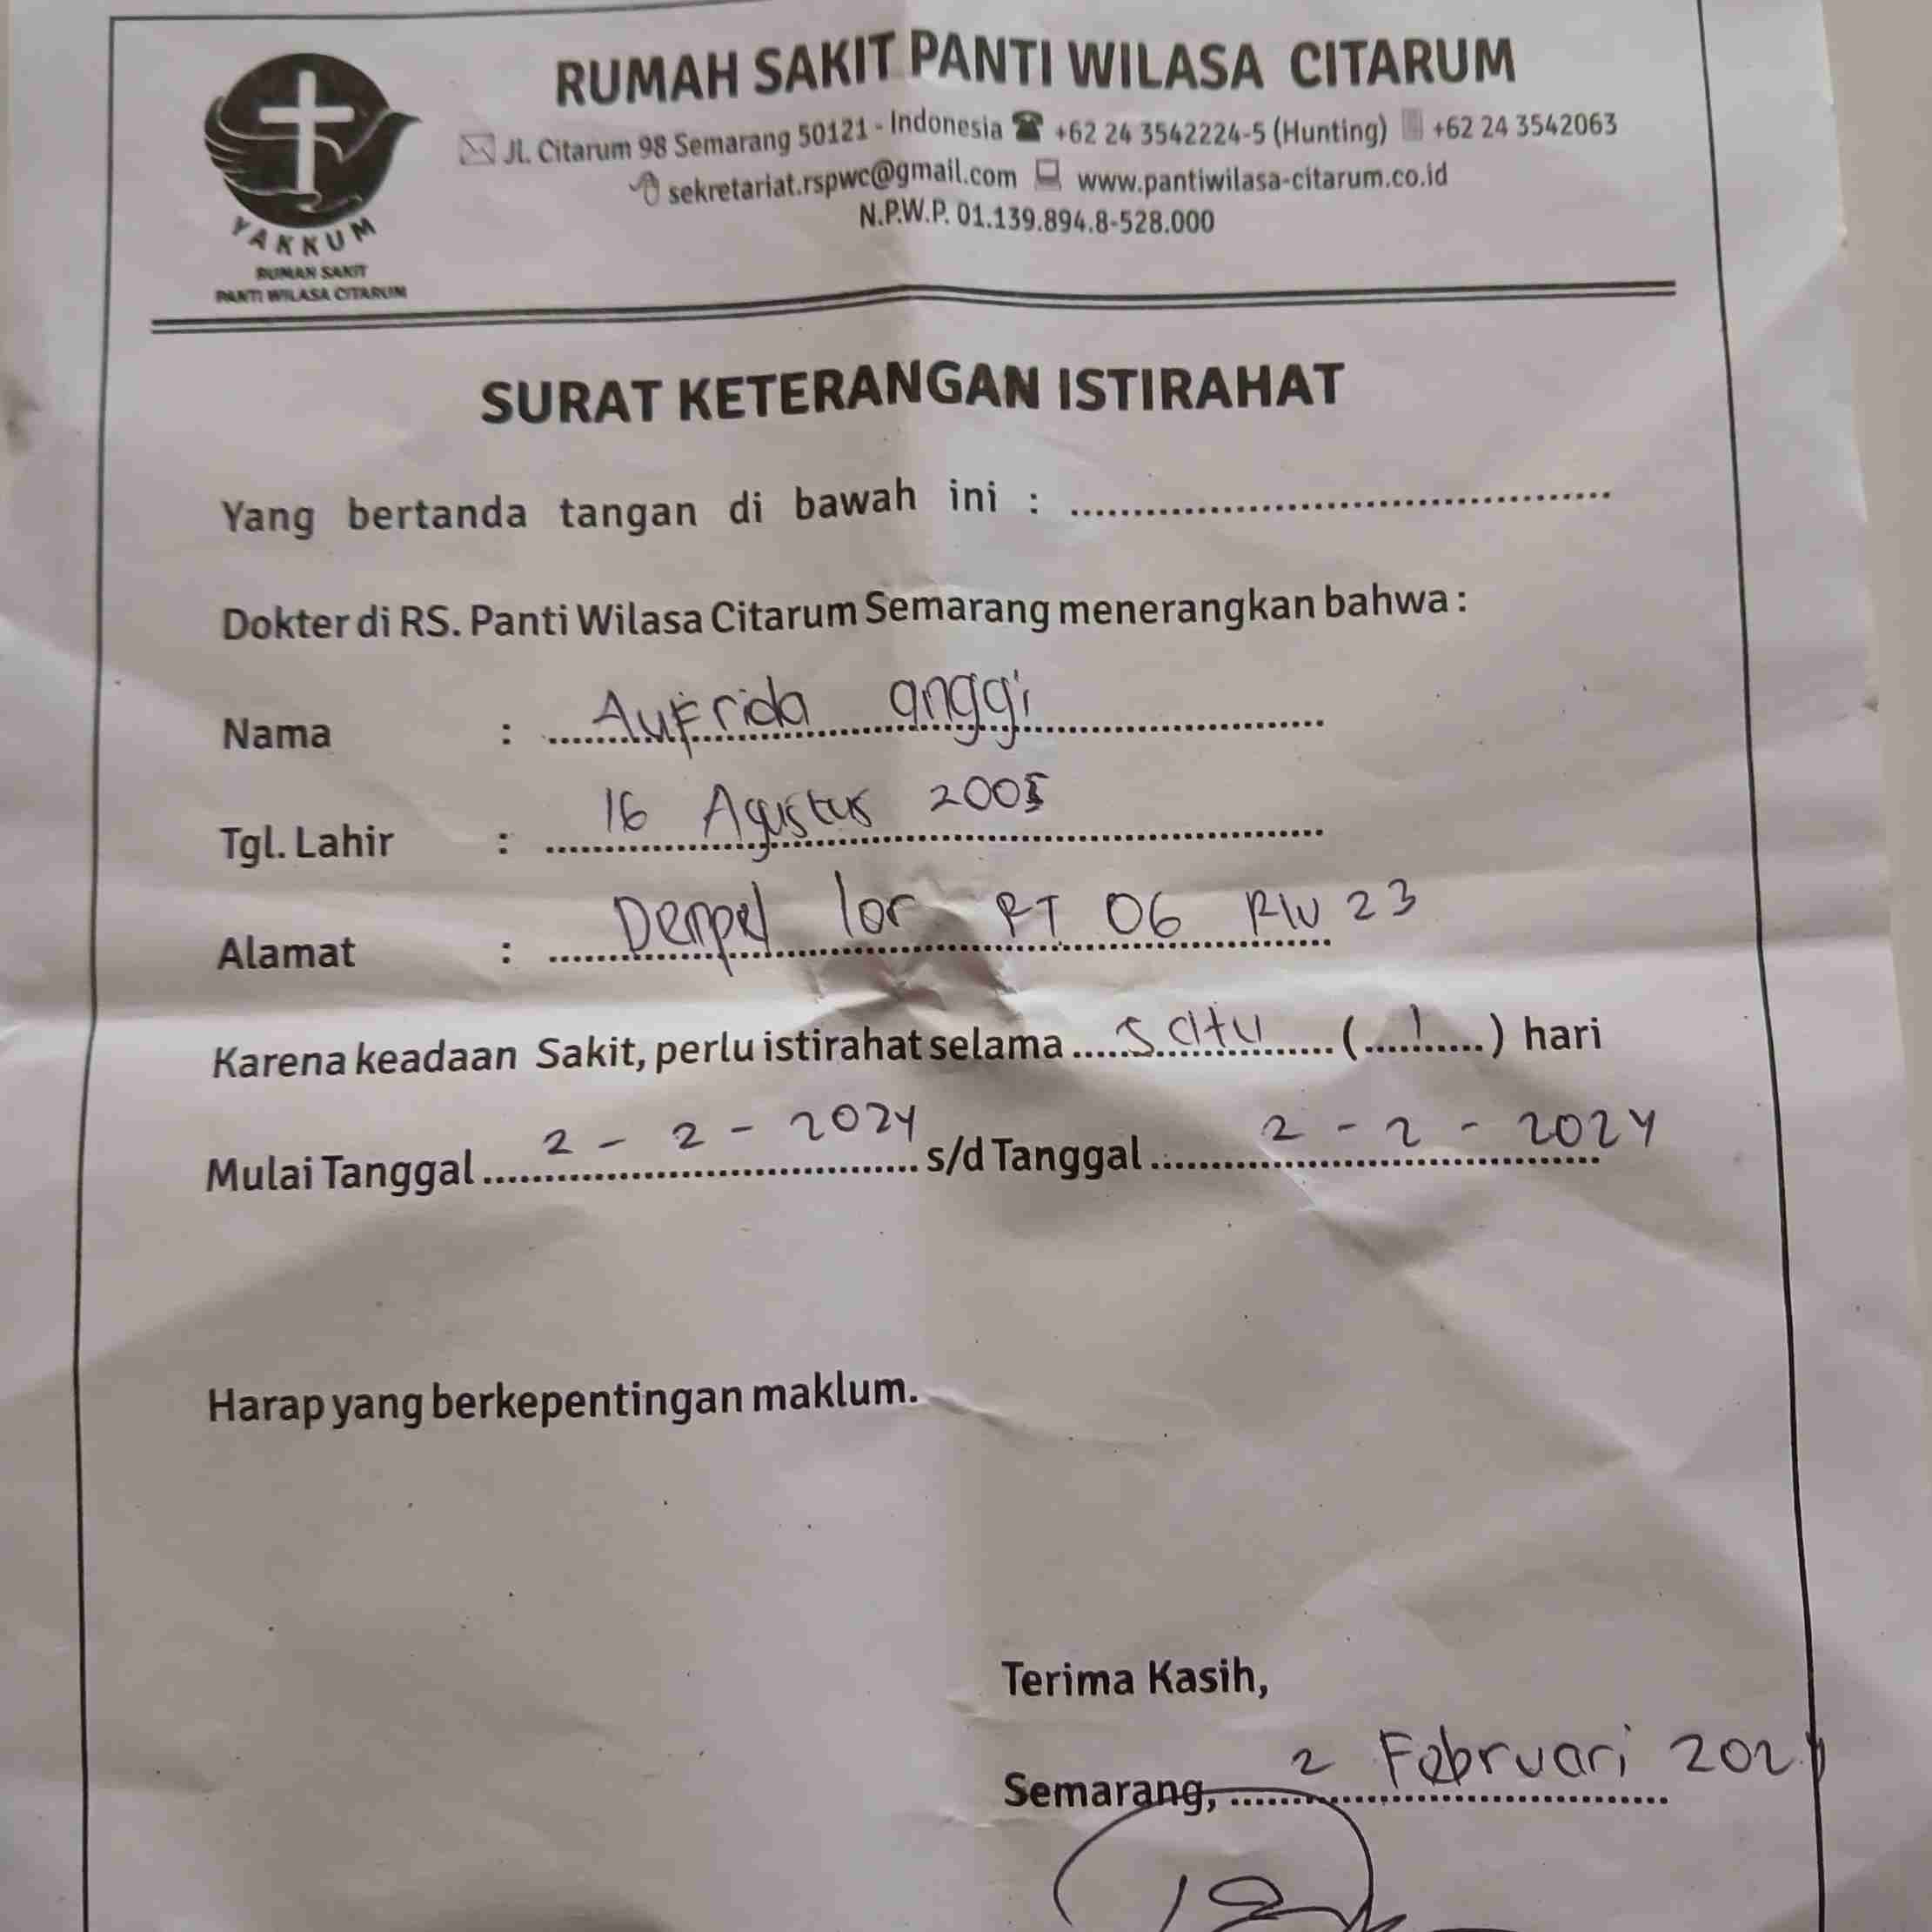 RUMAH SAKIT PANTI WILASA CITARUM
Jl. Citarum 98 Semarang 50121 - Indonesia +62 24 3542224-5 (Hunting) +62 24 3542063
sekretariat.rspwc@gmail.com www.pantiwilasa-citarum.co.id
N.P.W.P. 01.139.894.8-528.000
YAKKUM
RUMAH SAKIT
PANTI WILASA CITARUM
SURAT KETERANGAN ISTIRAHAT
Yang bertanda tangan di bawah ini : ........................................
Dokter di RS. Panti Wilasa Citarum Semarang menerangkan bahwa :
Nama : Aufrida anggi
Tgl. Lahir : 16 Agustus 2005
Alamat : Dempel lor RT 06 RW 23
Karena keadaan Sakit, perlu istirahat selama satu ( 1 ) hari
Mulai Tanggal 2 - 2 - 2024 s/d Tanggal 2 - 2 - 2024
Harap yang berkepentingan maklum.
Terima Kasih,
Semarang, 2 Februari 2024